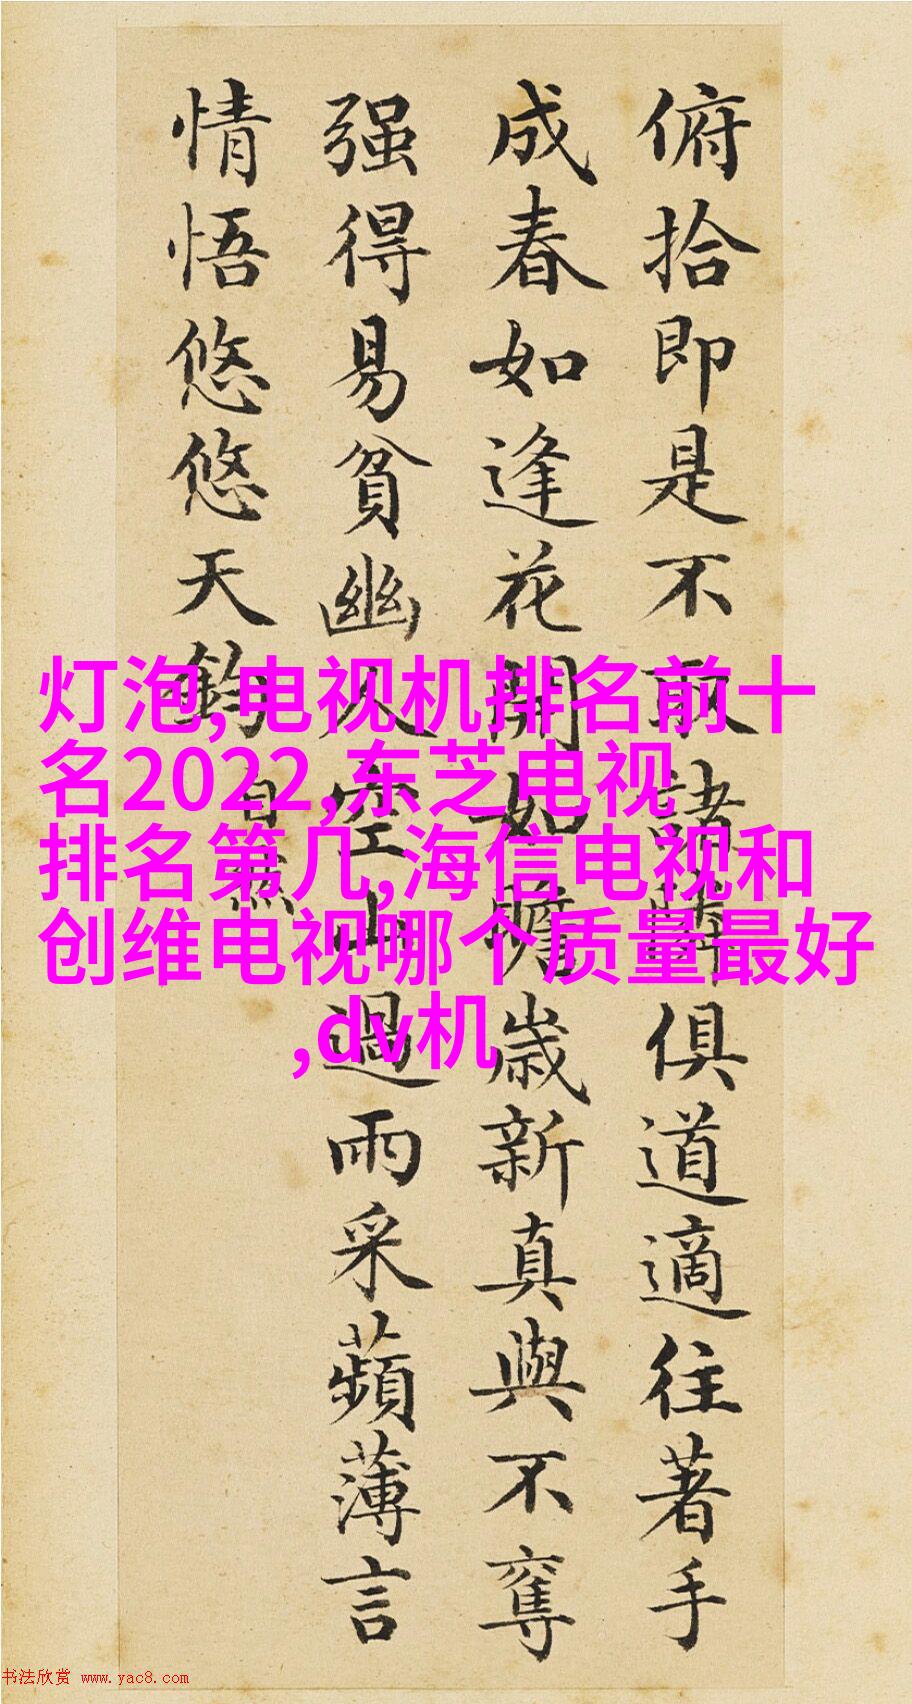 俯拾即是不取諸鄰俱道適往著手
成春如逢花開如瞻歲新真與不奪
强得易貧幽人空山過雨采蘋薄言
情悟悠悠天鈞
自然
灯泡,电视机排名前十
名2022,东芝电视
排名第几,海信电视和
创维电视哪个质量最好
,dv机
书法欣赏 www.yac8.com